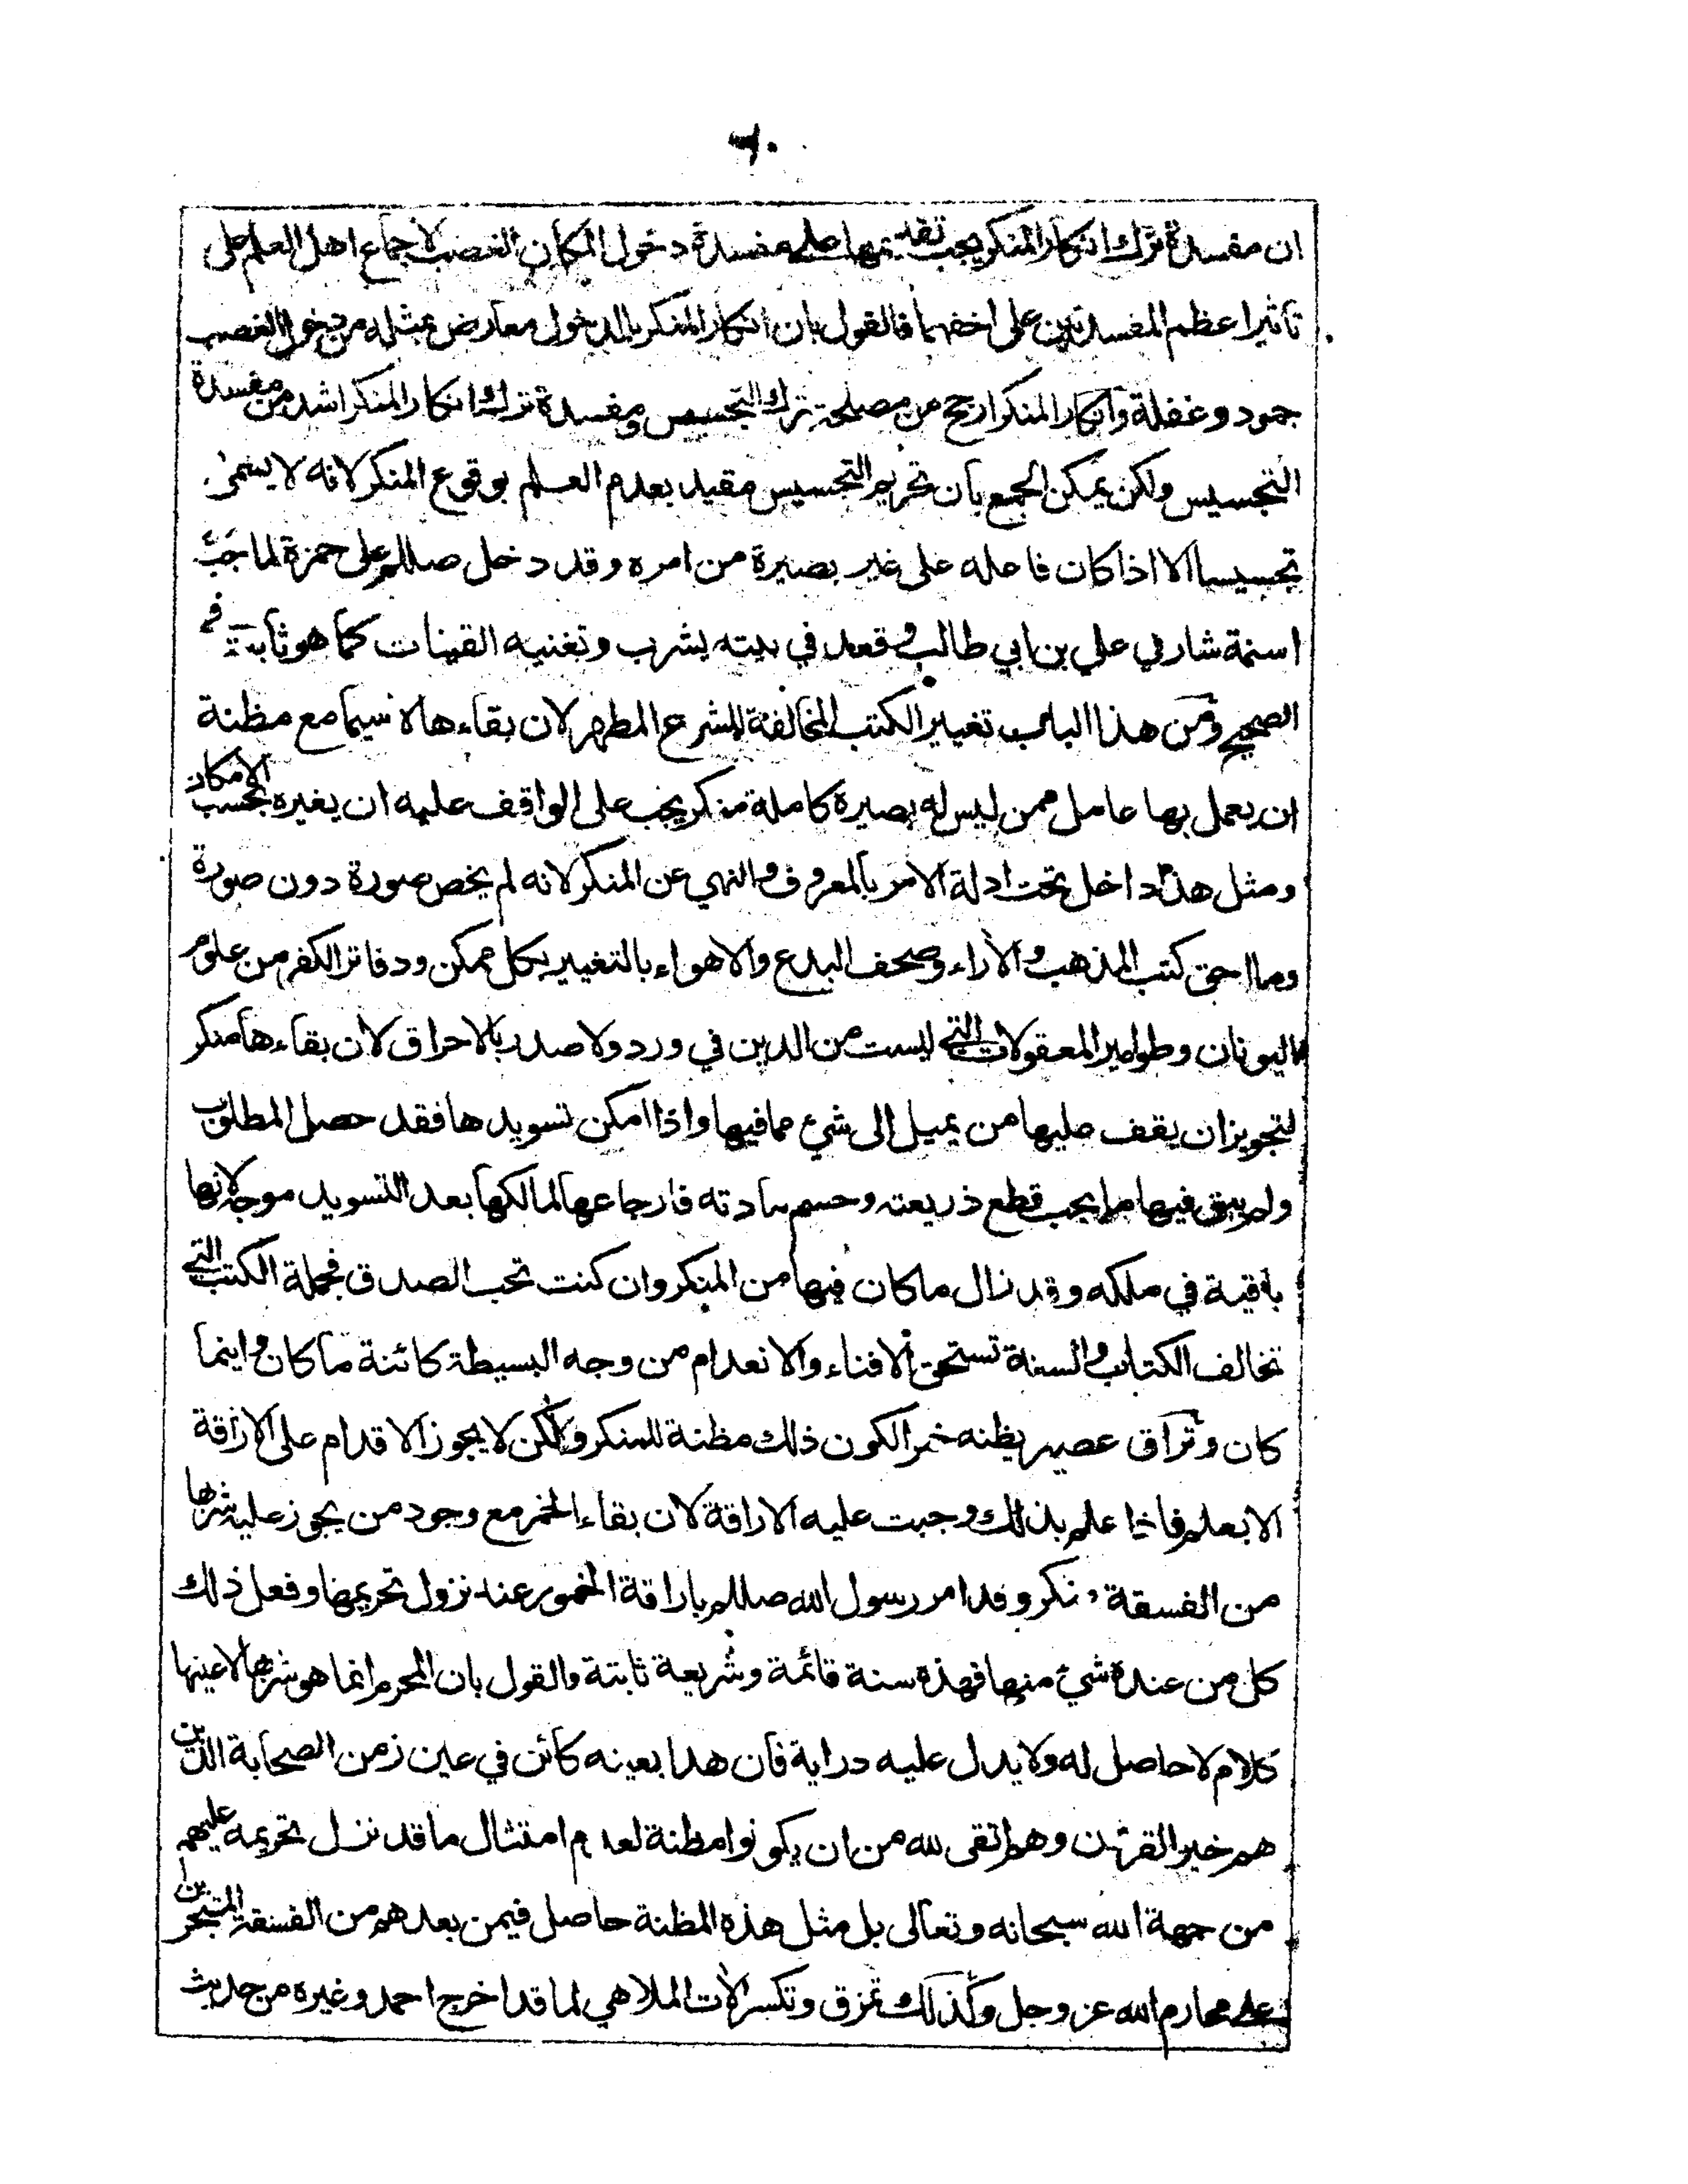 ٦٠
ان مفسدة ترك انكار المنكر يجب تقديمها على مفسدة دخول المكان الغصب لاجماع اهل العلم على
تاثير اعظم المفسدتين على اخفهما فالقول بان انكار المنكر بالدخول معارض بمثله من دخول الغصب
جمود وغفلة وانكار المنكر ارجح من مصلحة ترك التجسس ومفسدة ترك انكار المنكر اشد من مفسدة
التجسيس ولكن يمكن الجمع بان تحريم التجسيس مقيد بعدم العلم بوقوع المنكر لانه لا يسمى
تجسيسا الا اذا كان فاعله على غير بصيرة من امره وقد دخل صللم على حمزة لما جَبَّ
اسنمة شارفي علي بن ابي طالب وقعد في بيته يشرب وتغنيه القينات كما هو ثابت في
الصحيح ومن هذا الباب تغيير الكتب المخالفة للشرع المطهر لان بقاءها لا سيما مع مظنة
ان يعمل بها عامل ممن ليس له بصيرة كاملة منكر يجب على الواقف عليه ان يغيره بحسب الامكان
ومثل هذا داخل تحت ادلة الامر بالمعروف والنهي عن المنكر لانه لم يخص صورة دون صورة
وما احق كتب المذهب والآراء وصحف البدع والاهواء بالتغيير بكل ممكن ودفاتر الكفر من علوم
اليونان وطوامير المعقولات التي ليست من الدين في ورد ولا صدر بالاحراق لان بقاءها منكر
لتجويز ان يقف عليها من يميل الى شيء مما فيها واذا امكن تسويدها فقد حصل المطلوب
ولم يبق فيها ما يجب قطع ذريعته وحسم مادته فارجاعها لمالكها بعد التسويد موجه لانها
باقية في ملكه وقد زال ما كان فيها من المنكر وان كنت تحب الصدق فجملة الكتب التي
تخالف الكتاب والسنة تستحق الافناء والانعدام من وجه البسيطة كائنة ما كان واينما
كان وتراق عصير يظنه خمرا لكون ذلك مظنة للمنكر ولكن لا يجوز الاقدام على الاراقة
الا بعلم فاذا علم بذلك وجبت عليه الاراقة لان بقاء الخمر مع وجود من يجوز عليه شربها
من الفسقة منكر وقد امر رسول الله صللم باراقة الخمور عند نزول تحريمها وفعل ذلك
كل من عنده شيء منها فهذه سنة قائمة وشريعة ثابتة والقول بان المحرم انما هو شربها لا عينها
كلام لا حاصل له ولا يدل عليه دراية فان هذا بعينه كائن في عين زمن الصحابة الذين
هم خير القرون وهم اتقى لله من ان يكونوا مظنة لعدم امتثال ما قد نزل تحريمه عليهم
من جهة الله سبحانه وتعالى بل مثل هذه المظنة حاصل فيمن بعدهم من الفسقة المتجرين
على محارم الله عز وجل وكذلك تمزق وتكسر آلات الملاهي لما قد اخرج احمد وغيره من حديث